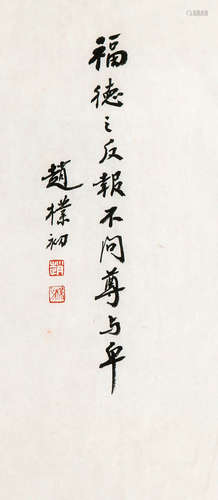 福德之反報不問尊与卑
趙樸初